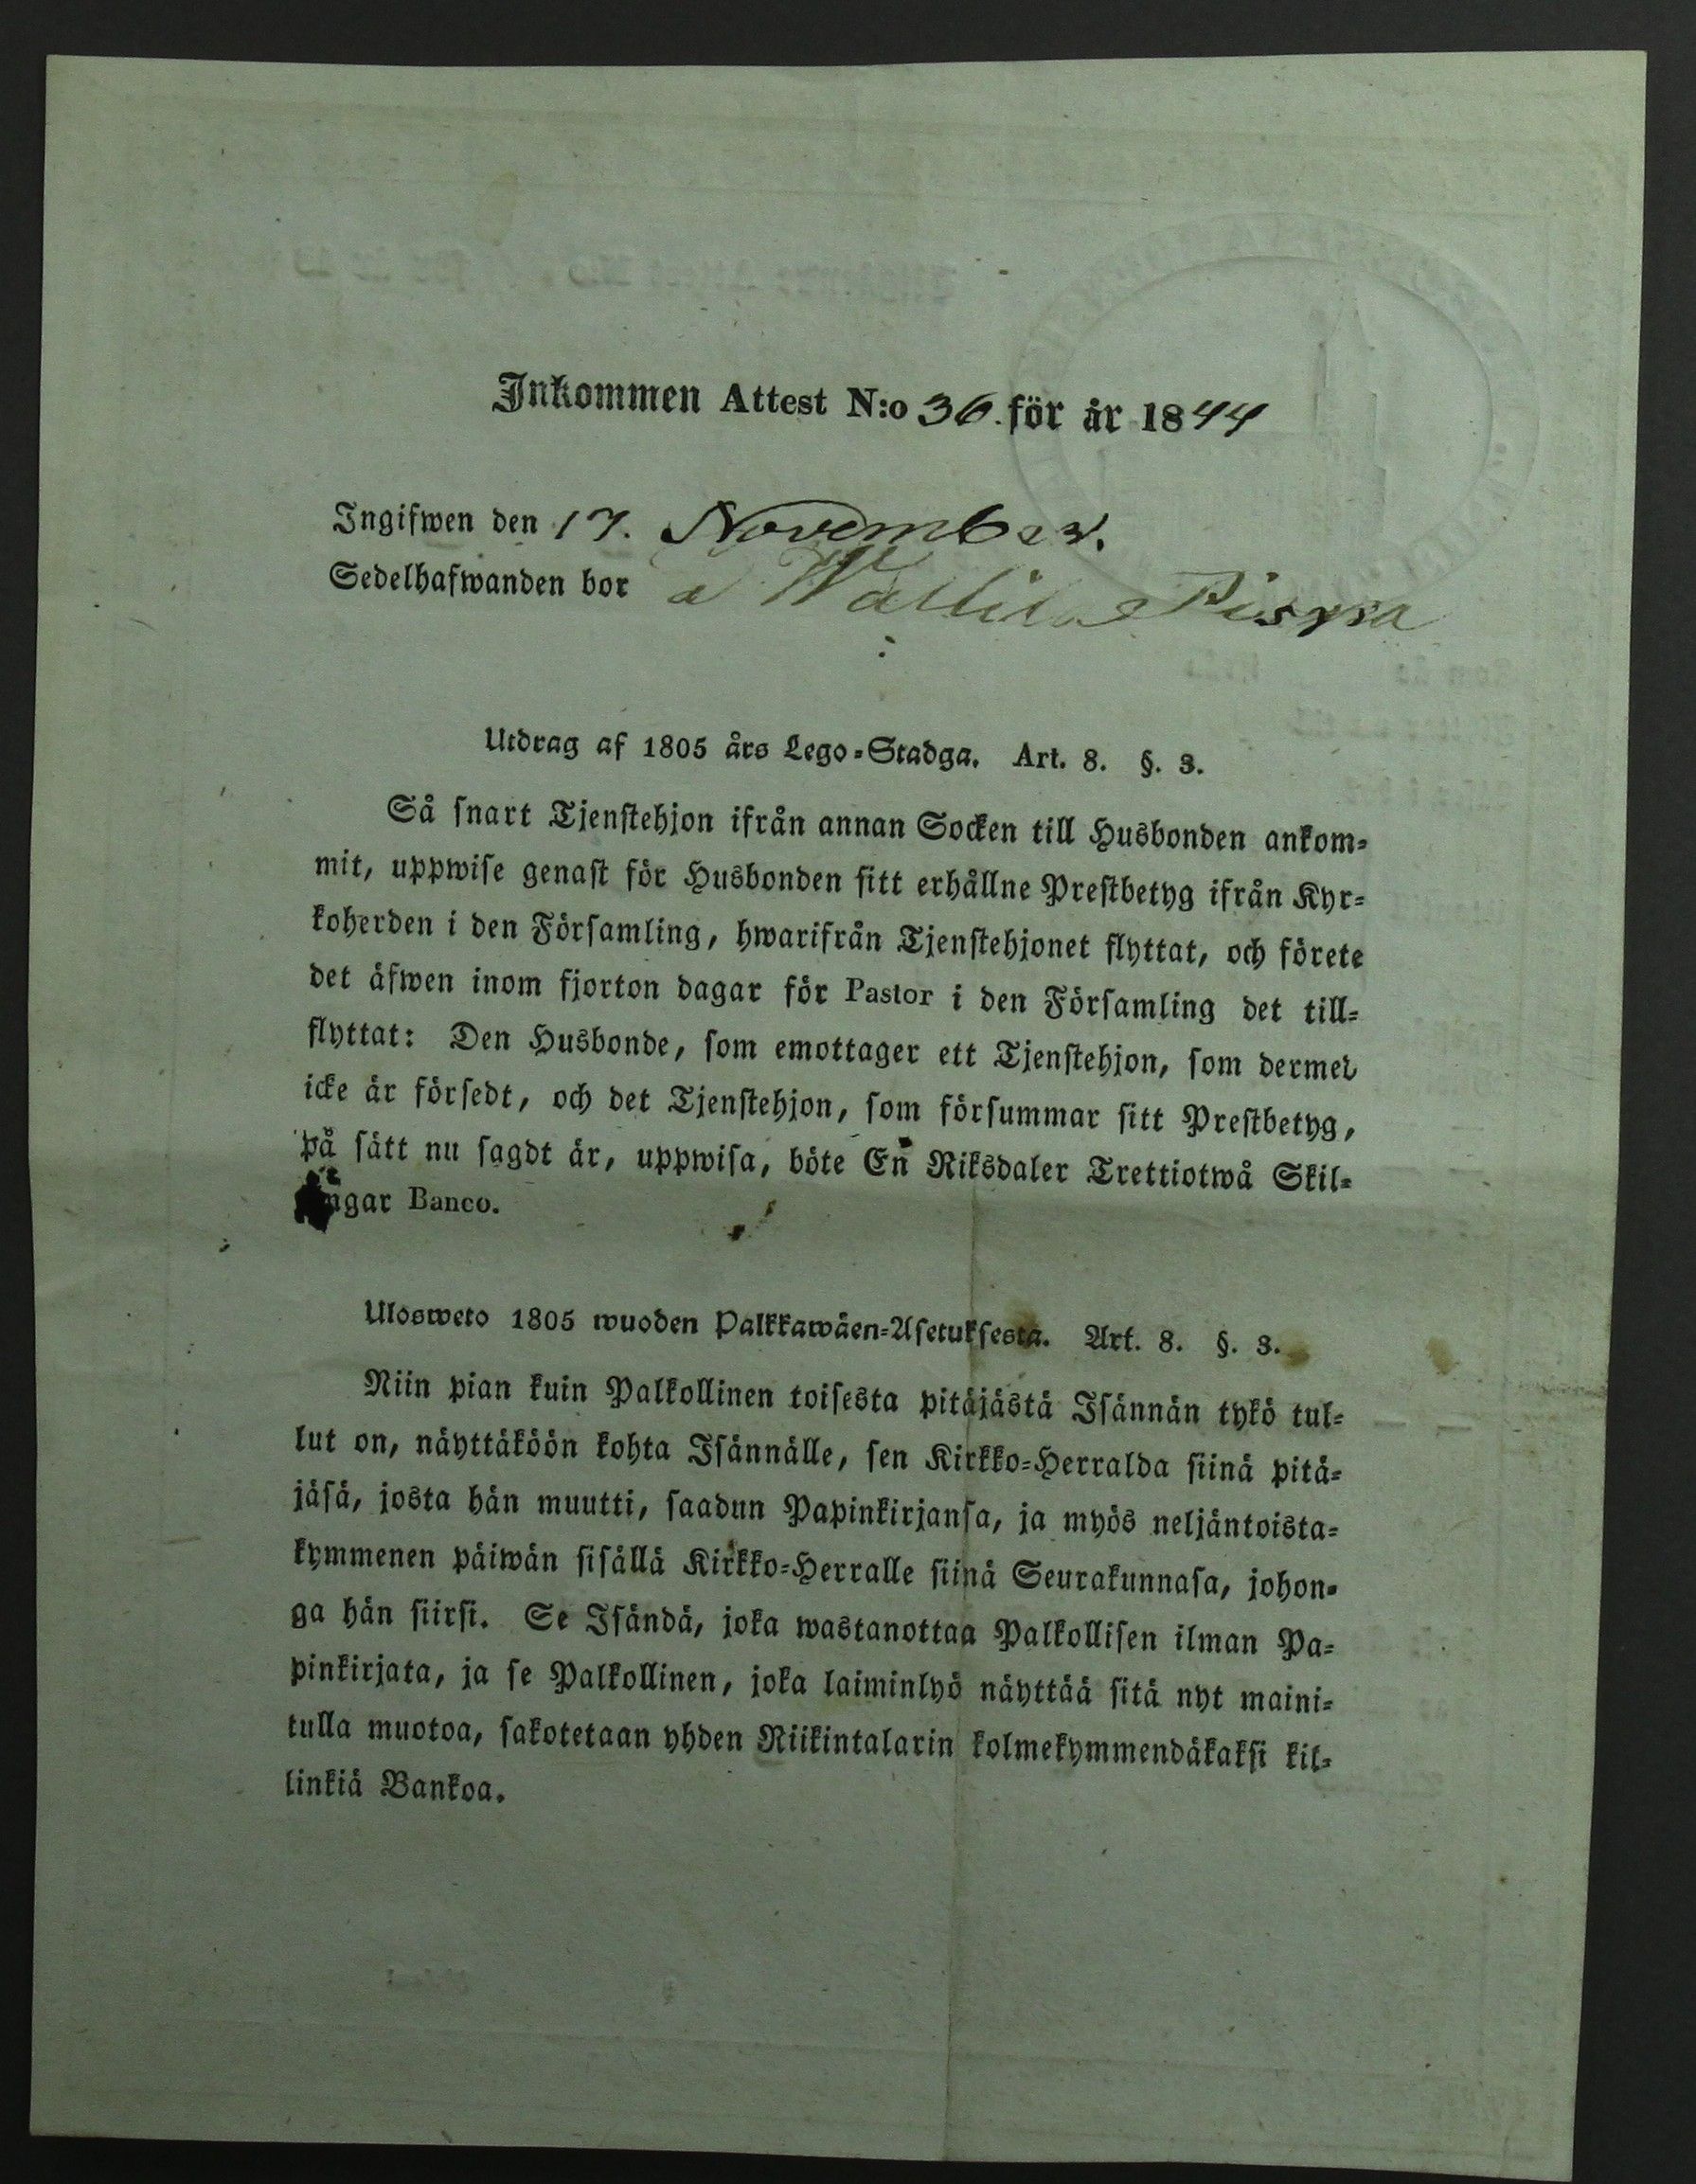 Inkommen Attest N:o 36. för år 1844
Ingifwen den 17. November.
Sedelhafwanden bor a
Utdrag af 1805 års Lego-Stadga. Art. 8. §. 3.
Så snart Tjenstehjon ifrån annan Socken till Husbonden ankom-
mit, uppwise genast för Husbonden sitt erhållne Prestbetyg ifrån Kyr-
koherden i den Församling, hwarifrån Tjenstehjonet flyttat, och förete
det äfwen inom fjorton dagar för Pastor i den Församling det till-
flyttat: Den Husbonde, som emottager ett Tjenstehjon, som dermed
icke är försedt, och det Tjenstehjon, som försummar sitt Prestbetyg,
på sätt nu sagdt är, uppwisa, böte En Riksdaler Trettiotwå Skil-
ingar Banco.
Ulosweto 1805 wuoden Palkkawäen-Asetuksesta. Art. 8. §. 3.
Niin pian kuin Palkollinen toisesta pitäjästä Isännän tykö tul-
lut on, näyttäköön kohta Isännälle, sen Kirkko-Herralda siinä pitä-
jäsä, josta hän muutti, saadun Papinkirjansa, ja myös neljäntoista-
kymmenen päiwän sisällä Kirkko-Herralle siinä Seurakunnasa, johon-
ga hän siirsi. Se Isändä, joka wastanottaa Palkollisen ilman Pa-
pinkirjata, ja se Palkollinen, joka laiminlyö näyttää sitä nyt maini-
tulla muotoa, sakotetaan yhden Riikintalarin kolmekymmendäkaksi kil-
linkiä Bankoa.